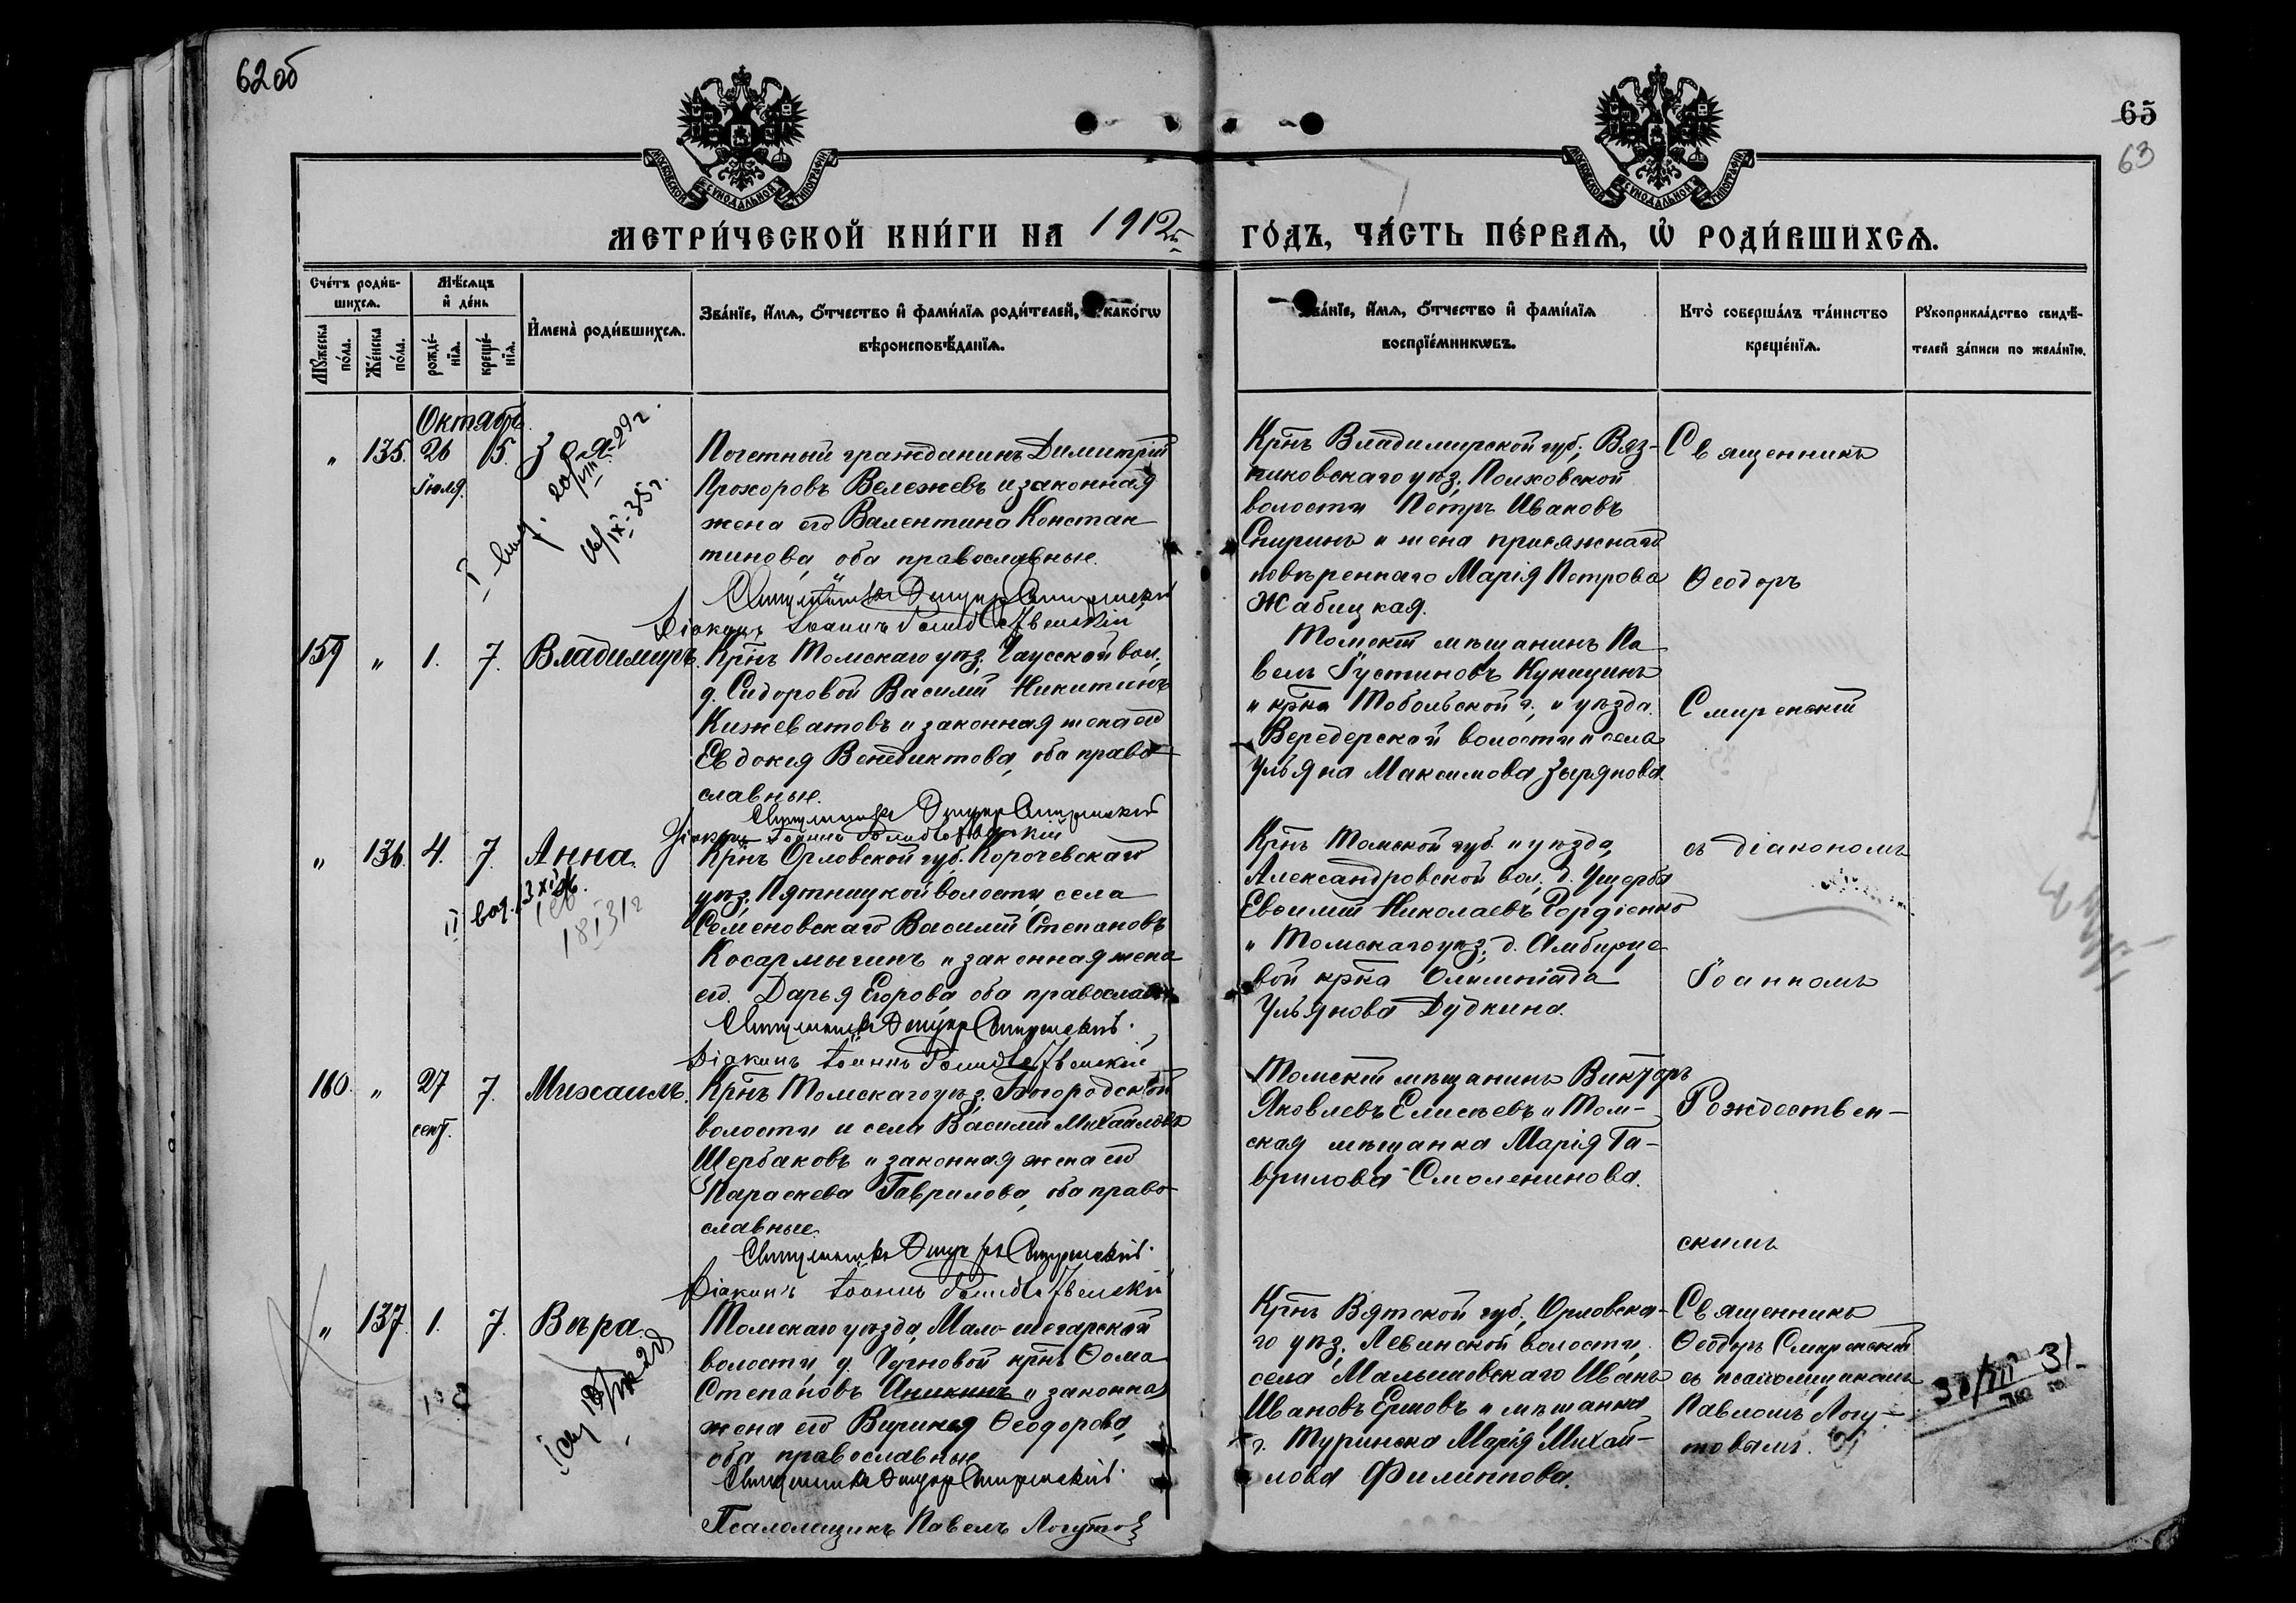 62 об
65
63
МОСКОВСКОЙ СѴНОДАЛЬНОЙ ТИПОГРАФІИ
МОСКОВСКОЙ СѴНОДАЛЬНОЙ ТИПОГРАФІИ
МЕТРИ́ЧЕСКОЙ КНИ́ГИ НА 1912й
ГО́ДЪ, ЧА́СТЬ ПЕ́РВАѦ, Ѡ҆ РОДИ́ВШИХСѦ.
Сче́тъ роди́в-
шихсѧ.
Мꙋ́жеска по́ла.
Же́нска по́ла.
Мѣ́сѧцъ
и҆ де́нь
рожде́нїѧ.
креще́нїѧ.
И҆мена̀ роди́вшихсѧ.
Зва́нїе, и҆́мѧ, ѻ҆́тчество и҆ фами́лїѧ роди́телей, и҆ како́гѡ
вѣроисповѣ́данїѧ.
Зва́нїе, и҆́мѧ, ѻ҆́тчество и҆ фами́лїѧ
воспрїе́мникѡвъ.
Кто̀ соверша́лъ та́инство
креще́нїѧ.
Рꙋкоприкла́дство свидѣ́-
телей за́писи по жела́нїю.
Октябрь
" 135. 26 5. Зоя
іюля.
Почетный гражданинъ Димитрій
Прохоровъ Вележевъ и законная
жена его Валентина Констан
тинова, оба православные.
Священникъ Ѳеодоръ Смиренскій
Діаконъ Іоаннъ Рождественскій
Крнъ Владимирской губ., Вяз-
никовскаго уѣз. Полховской
волости Петръ Ивановъ
Спиринъ и жена присяжнаго
повѣреннаго Марія Петрова
Жабицкая.
Священникъ
Ѳеодоръ
159 " 1. 7. Владимиръ.
Крнъ Томскаго уѣз. Чаусской вол.,
д. Сидоровой Василій Никитинъ
Кижеватовъ и законная жена его
Евдокія Венедиктова, оба право
славные.
Священникъ Ѳеодоръ Смиренскій
Діаконъ Іоаннъ Рождественскій
Томскій мѣщанинъ Па
велъ Іустиновъ Куницинъ
и крнка Тобольской г. и уѣзда
волости и села
Ульяна Максимова Зырянова.
Смиренскій
" 136. 4. 7. Анна.
II выд.
18 I 31 г
Крнъ Орловской губ. Корочевскаго
уѣз. Пятницкой волости, села
Семеновскаго Василій Степановъ
Косармыгинъ и законная жена
его Дарья Егорова оба православн
Священникъ Ѳеодоръ Смиренскій.
Діаконъ Іоаннъ Рождественскій
Крнъ Томской губ. и уѣзда,
Александровской вол. д. Ущерба
Евѳимій Николаевъ Гордіенко
и Томскаго уѣз. д.
вой крнка Олимпіада
Ульянова Дудкина.
съ діакономъ
Іоанномъ
160. " 27 7. Михаилъ.
сент.
Крнъ Томскаго уѣз. Богородской
волости и села Василій Михайловъ
Щербаковъ и законная жена его
Параскева Гаврилова, оба право-
славные.
Священникъ Ѳеодоръ Смиренскій.
Діаконъ Іоаннъ Рождественскій
Томскій мѣщанинъ Викторъ
Яковлевъ Елисѣевъ и Том-
ская мѣщанка Марія Га-
врилова Смоленинова.
Рождествен-
скимъ
" 137. 1. 7. Вѣра.
Томскаго уѣзда, Мало-шегарской
волости, д. Черновой крнъ Ѳома
Степановъ Аникинъ и законная
жена его Виринея Ѳеодорова,
оба православные
Священникъ Ѳеодоръ Смиренскій.
Псаломщикъ Павелъ Логутов
Крнъ Вятской губ., Орловска-
го уѣз. Левинской волости,
села Малышовскаго Иванъ
Ивановъ Ершовъ и мѣщанка
г. Туринска Марія Михай-
лова Филиппова.
Священникъ
Ѳеодоръ Смиренскій
съ псаломщикомъ
Павломъ Логу-
товымъ.